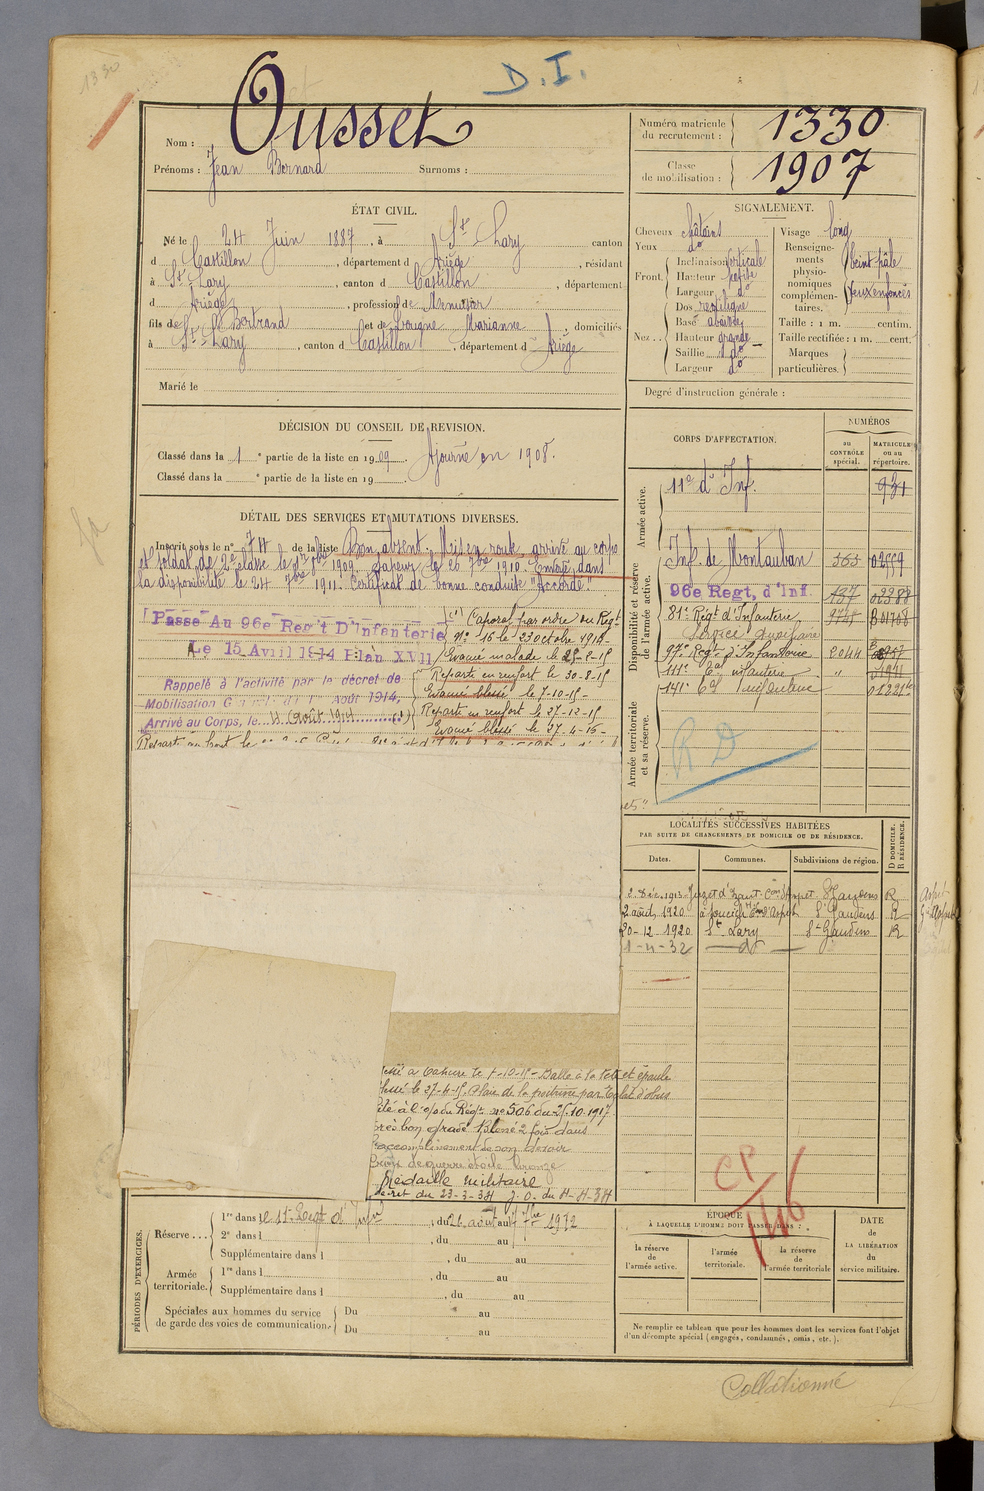 1330
D.I.
Nom : Ousset
Prénoms : Jean Bernard Surnoms :
Numéro matricule du recrutement : 1330
Classe de mobilisation : 1907
ÉTAT CIVIL.
Né le 24 Juin 1887, à St Lary canton
d Castillon, département d Ariège, résidant
à St Lary, canton d Castillon, département
d Ariège, profession de Menuisier
fils de St Bertrand et de Marianne, domiciliés
à St Lary, canton d Castillon, département d Ariège
Marié le
SIGNALEMENT.
Cheveux châtains
Yeux do
Front. Inclinaison verticale
Hauteur petite
Largeur do
Nez.. Dos rectiligne
Base abaissée
Hauteur grande
Saillie do
Largeur do
Visage long
Renseignements physionomiques complémentaires. Teint pâle
Yeux enfoncés
Taille : 1 m. centim.
Taille rectifiée : 1 m. cent.
Marques particulières.
Degré d'instruction générale :
DÉCISION DU CONSEIL DE REVISION.
Classé dans la 1 e partie de la liste en 1909. Ajourné en 1908.
Classé dans la e partie de la liste en 19
DÉTAIL DES SERVICES ET MUTATIONS DIVERSES.
Inscrit sous le n° 74 de la liste Bon absent. Mis en route, arrivé au corps
et soldat de 2e classe le 8bre 1909. Sapeur le 26 7bre 1910. Envoyé dans
la disponibilité le 24 7bre 1911. Certificat de bonne conduite "Accordé".
Passé Au 96e Reg't D'Infanterie
Le 15 Avril 1914 Plan XVII
Rappelé à l'activité par le décret de
Mobilisation Générale du 1 Août 1914,
Arrivé au Corps, le 4 Août 1914 (1)
(1) Caporal par ordre du Régt
N° 16 le 23 octobre 1914
Evacué malade le 25-8-15
Reparti en renfort le 30-8-15
Evacué blessé le 7-10-15
Reparti en renfort le 27-12-15
Evacué blessé le 27-4-16
CORPS D'AFFECTATION.
NUMÉROS
au CONTRÔLE spécial.
MATRICULE ou au répertoire.
Armée active.
11e d'Inf. 931
Disponibilité et réserve de l'armée active.
Inf. de Montauban 565 02559
96e Regt, d'Inf. 137 02388
81e Régt d'Infanterie 01768
Service Auxiliaire
97e Regt d'Infanterie 2044
111e d'Infanterie "
141e d'Infanterie
Armée territoriale et sa réserve.
R D
LOCALITÉS SUCCESSIVES HABITÉES
PAR SUITE DE CHANGEMENTS DE DOMICILE OU DE RÉSIDENCE.
Dates. Communes. Subdivisions de région. D DOMICILE. R RÉSIDENCE.
2 Déc. 1913 Juzet d'Izaut Con d'Aspet St Gaudens R
2 août 1920 St Gaudens R
20-12-1920 St Lary St Gaudens R
1-4-32 do
à Tahure le 7-10-15 - Balle à la tête et épaule
le 27-4-15. Plaie de la poitrine par Eclat d'obus
à l'o/ du Régt n° 506 du 25.10.1917
très bon gradé blessé 2 fois dans
l'accomplissement de son devoir
Croix de guerre étoile bronze
Médaille militaire
décret du 23-3-34 J.O. du 4-4-34
CP
146
PÉRIODES D'EXERCICES.
Réserve ... 1re dans le 11e Regt d'Infrie, du 26 août au 7bre 1912
2e dans l , du au
Supplémentaire dans l , du au
Armée territoriale. 1re dans l , du au
Supplémentaire dans l , du au
Spéciales aux hommes du service de garde des voies de communication. Du au
Du au
ÉPOQUE
À LAQUELLE L'HOMME DOIT PASSER DANS :
la réserve de l'armée active.
l'armée territoriale.
la réserve de l'armée territoriale
DATE de LA LIBÉRATION du service militaire.
Ne remplir ce tableau que pour les hommes dont les services font l'objet
d'un décompte spécial (engagés, condamnés, omis, etc.).
Collationné